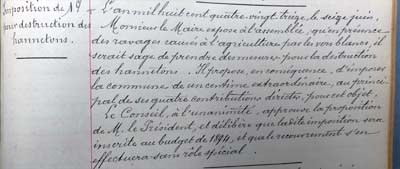 Imposition de 1 ct
pour destruction des
hannetons.
L'an mil huit cent quatre-vingt-treize, le seize juin,
Monsieur le Maire expose à l'assemblée, qu'en présence
des ravages causés à l'agriculture par les vers blancs, il
serait sage de prendre des mesures pour la destruction
des hannetons. Il propose, en conséquence, d'imposer
la commune de un centime extraordinaire, au princi-
pal de ses quatre contributions directes, pour cet objet.
Le Conseil, à l'unanimité, approuve la proposition
de M. le Président, et délibère que ladite imposition sera
inscrite au budget de 1894, et que le recouvrement s'en
effectuera sans rôle spécial.